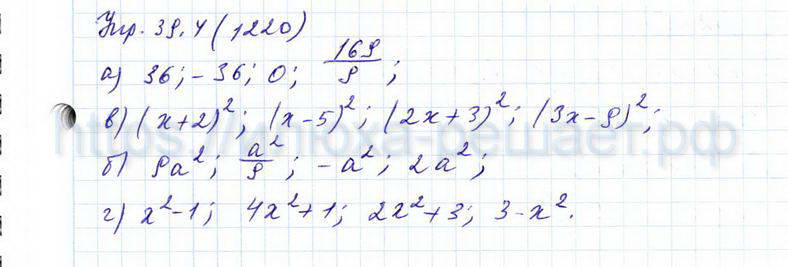 Упр. 39.4 (1220)
а) 36; -36; 0; 169/9;
в) (x+2)²; (x-5)²; (2x+3)²; (3x-9)²;
https://илюха-решает.рф
б) 9a²; a²/9; -a²; 2a²;
г) x²-1; 4x²+1; 2x²+3; 3-x².